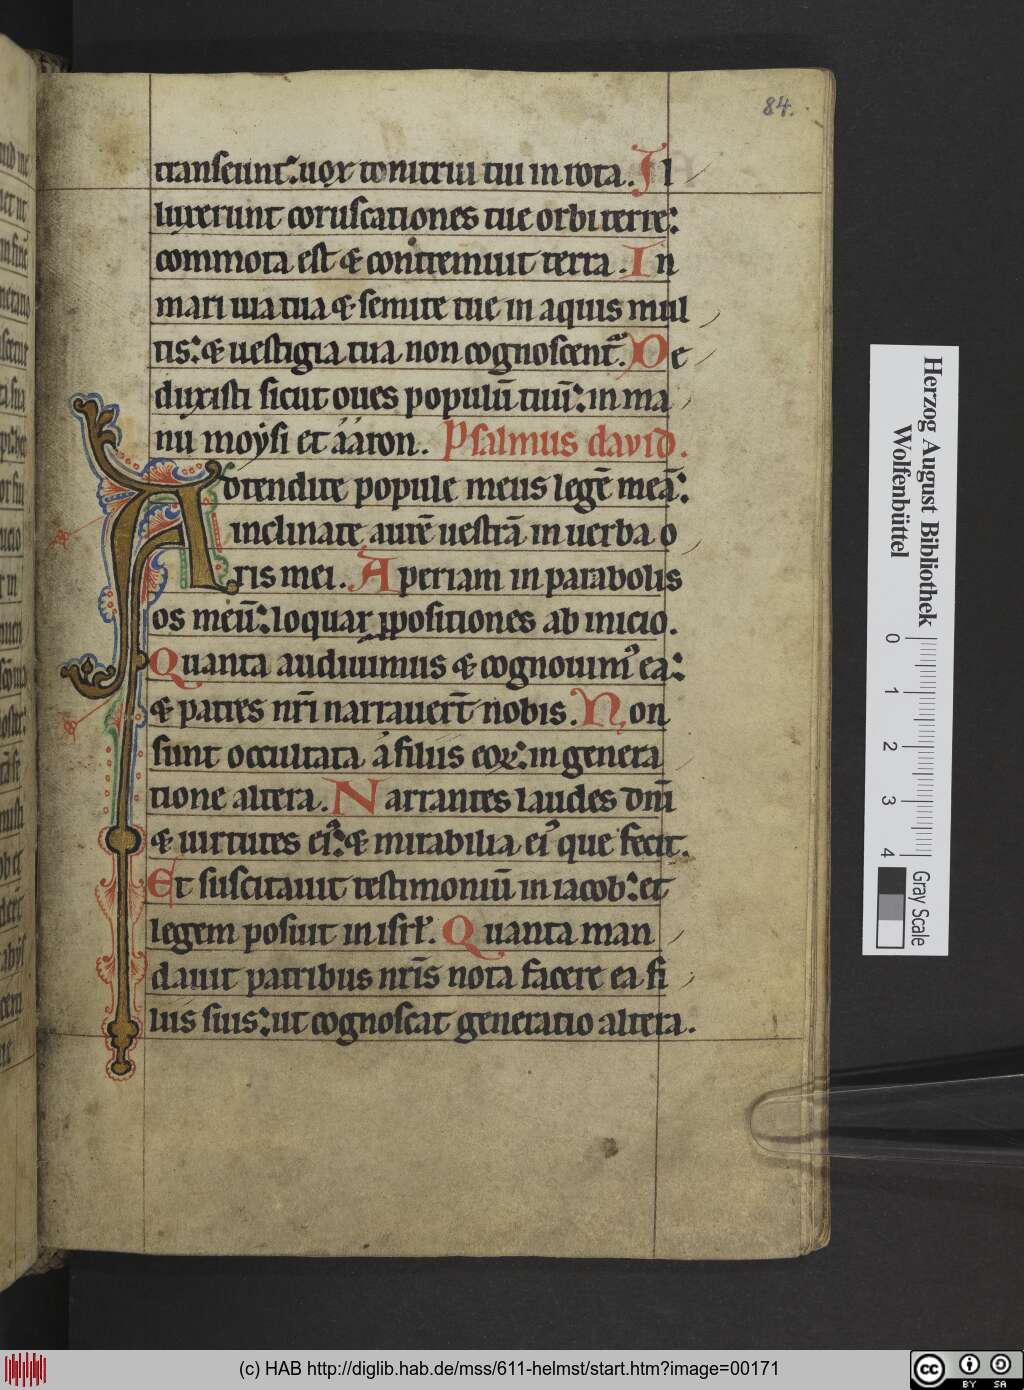 84.
transeunt: uox tonitrui tui in rota. Il
luxerunt coruscationes tue orbi terre:
commota est & contremuit terra. In
mari uia tua & semite tue in aquis mul
tis: & uestigia tua non cognoscent᷑. De
duxisti sicut oues populū tuū: in ma
nu moẏsi et ááron. Psalmus david.
Adtendite popule meus legē meā:
inclinate aurē uestrā in uerba o
ris mei. Aperiam in parabolis
os meū: loquar ꝓpositiones ab inicio.
Quanta audiuimus & cognouimꝰ ea:
& patres nr̄i narrauert̄ nobis. Non
sunt occultata á filiis eoꝝ: in genera
tione altera. Narrantes laudes dnī
& uirtutes eiꝰ: & mirabilia eiꝰ que fecit.
Et suscitauit testimoniū in iacob: et
legem posuit in isrl̄. Quanta man
dauit patribus nrīs nota facere ea fi
liis suis: ut cognoscat generatio altera.
Herzog August Bibliothek
Wolfenbüttel
0 1 2 3 4
Gray Scale
(c) HAB http://diglib.hab.de/mss/611-helmst/start.htm?image=00171
cc BY SA